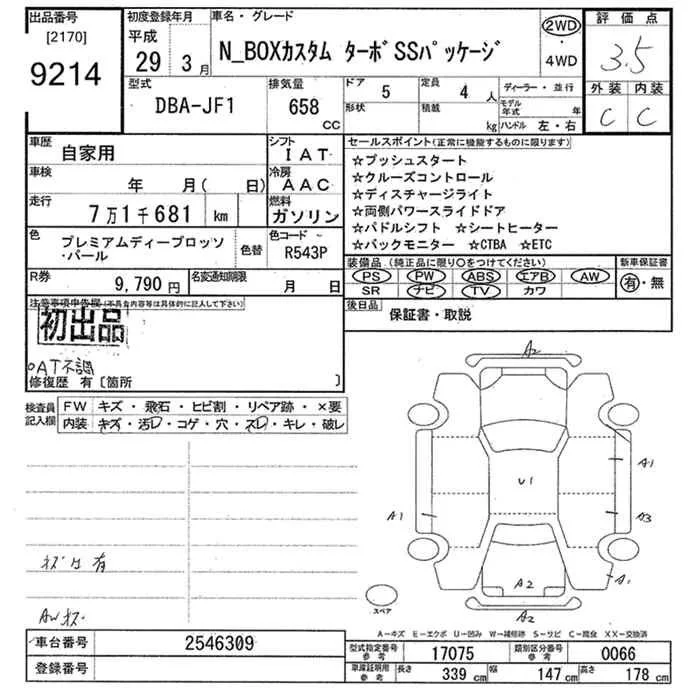 出品番号
[2170]
9214
初度登録年月
平成
29 3月
車名・グレード
N_BOXカスタム ターボSSパッケージ
2WD
・
4WD
評価点
3.5
外装 内装
C C
型式
DBA-JF1
排気量
658
CC
ドア
5
定員
4 人
形状
積載
kg
ディーラー・並行
モデル年式 年
ハンドル 左・右
車歴
自家用
シフト
IAT
車検
年 月( 日)
冷房
AAC
走行
7万1千681 km
燃料
ガソリン
色
プレミアムディープロッソ
・パール
色替
色コード
R543P
R券
9,790 円
名変通知期限
月 日
セールスポイント(正常に機能するものに限ります)
☆プッシュスタート
☆クルーズコントロール
☆ディスチャージライト
☆両側パワースライドドア
☆パドルシフト ☆シートヒーター
☆バックモニター ☆CTBA ☆ETC
装備品(純正品に限り○をつけてください)
PS PW ABS エアB AW
SR ナビ TV カワ
新車保証書
有・無
後日品
保証書・取説
注意事項申告欄(不具合内容等は具体的に記入して下さい)
初出品
○AT不調
修復歴 有〔箇所 〕
検査員
記入欄
FW キズ・飛石・ヒビ割・リペア跡・×要
内装 キズ・汚レ・コゲ・穴・スレ・キレ・破レ
有
A2
A1
U1
A1
A3
A2
A1
A2
スペア
A－キズ E－エクボ U－凹み W－補修跡 S－サビ C－腐食 XX－交換済
車台番号 2546309
登録番号
型式指定番号
参考
17075
類別区分番号
参考
0066
車庫証明用
参考
長さ 339 cm 幅 147 cm 高さ 178 cm